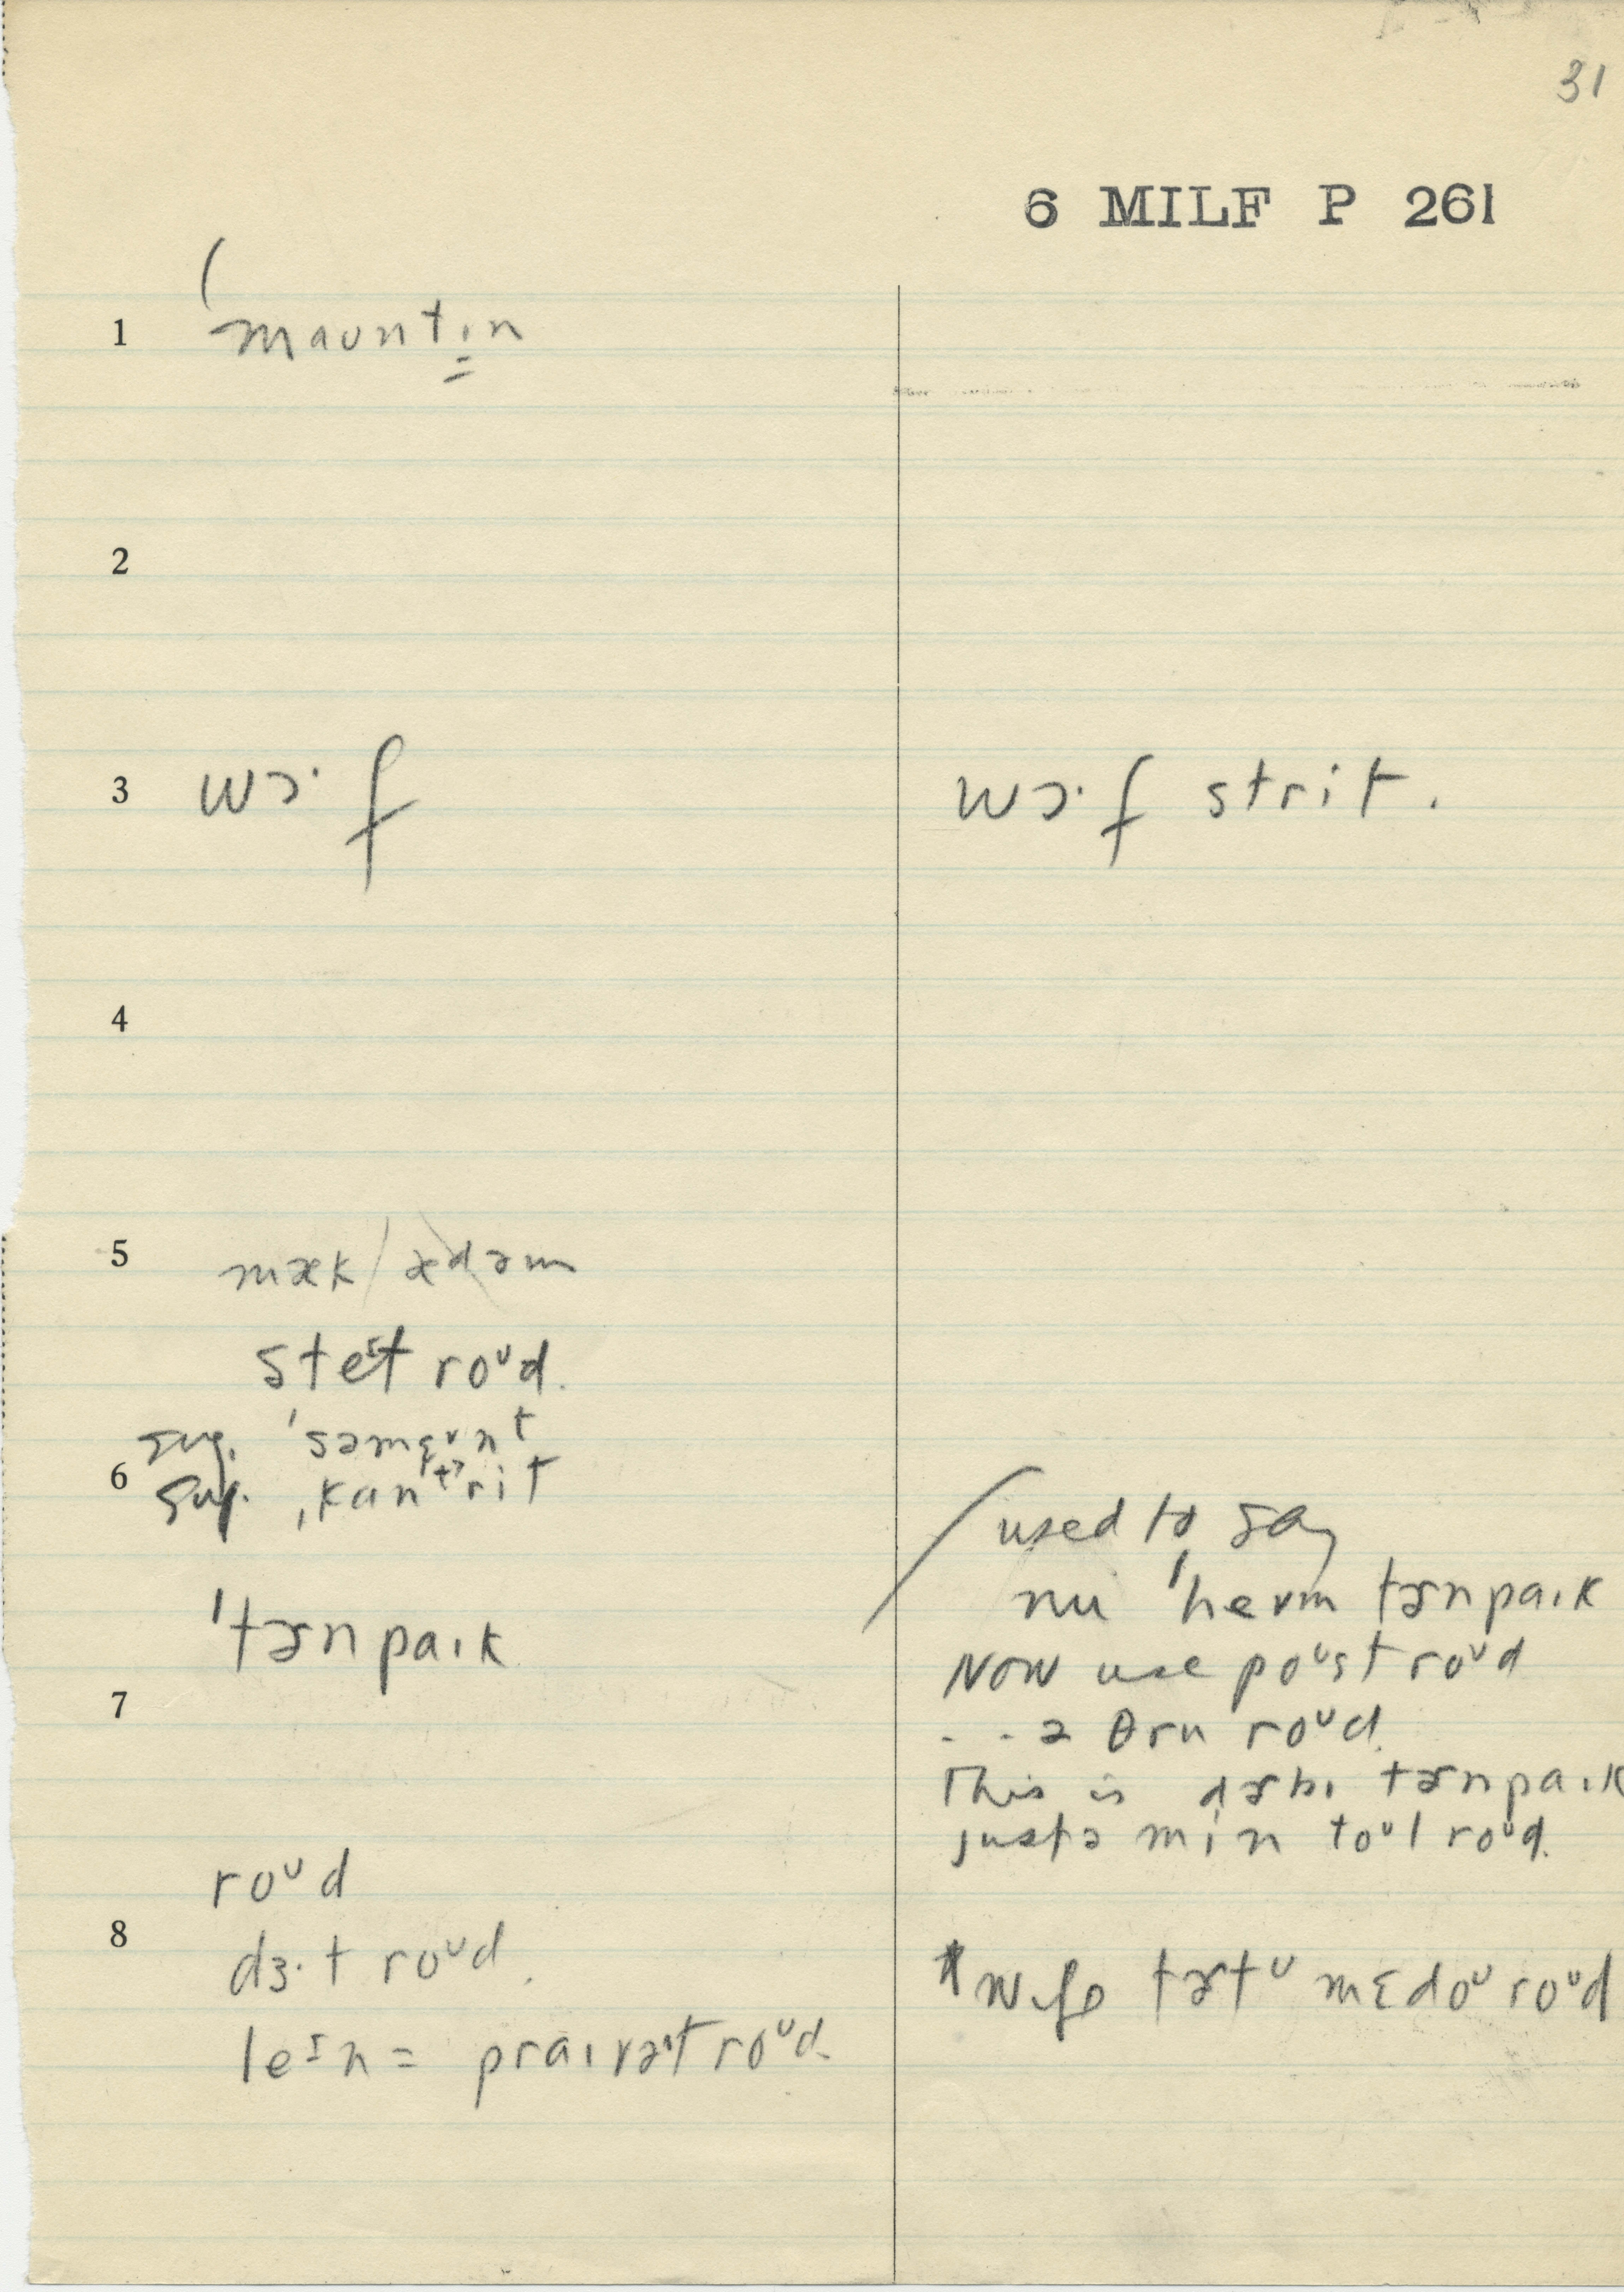 31
6 MILF P 261
1 ( maʊntɪn
2
3 wɔ· f
wɔ· f strit.
4
5 mæk / ædəm
steɪt roᴜd.
sug. 'səmɛʊnt
6 sug. ˌkantrit
'tɚnpaɪk
used to say
nu 'hevm tɚnpaɪk
Now use poᴜst roᴜd
7
. . ə θru roᴜd.
This is dɚbɪ tɚnpaɪk
just ə min toᴜl roᴜd.
roᴜd
8
dɜ·t roᴜd.
leɪn = praɪvət roᴜd.
* Wife tɚtᴜ mɛdoᴜ roᴜd